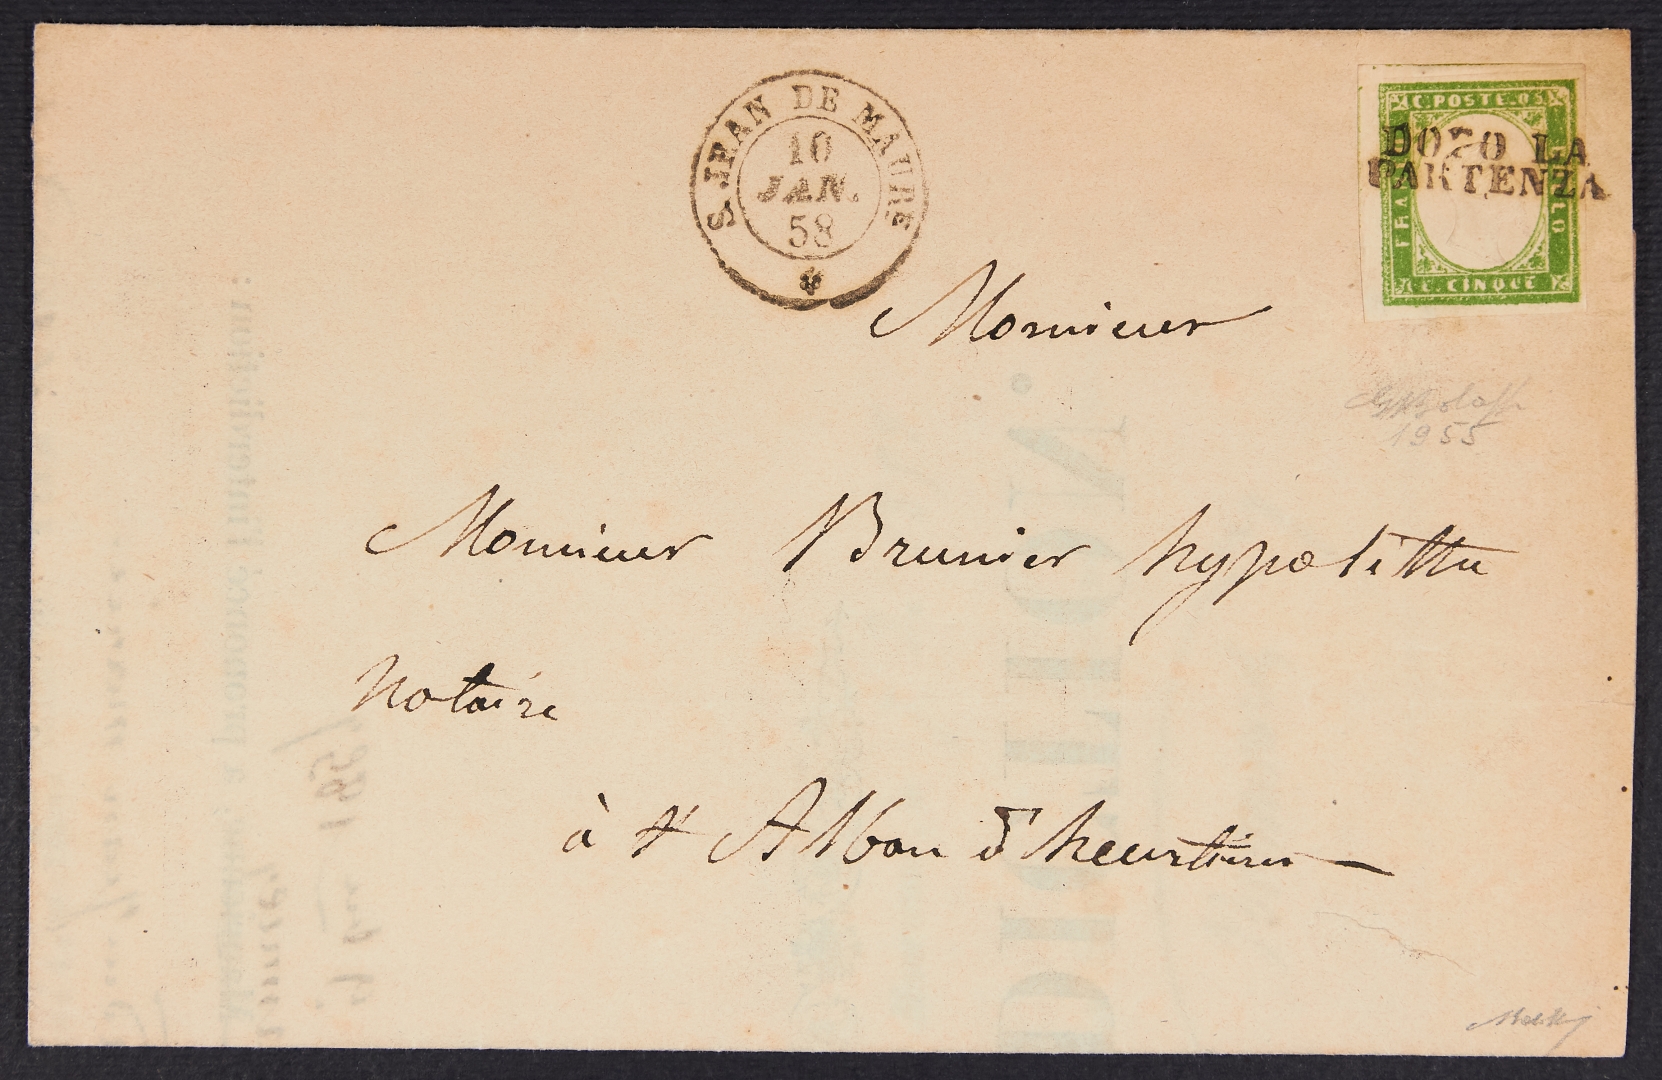 S. JEAN DE MAURE
10
JAN.
58
C. POSTE. 05
FRA
LLO
C. CINQUE
DOPO LA
PARTENZA
Monsieur
1955
Monsieur Brunier hypolitte
Notaire
à St Alban d'heurtieres